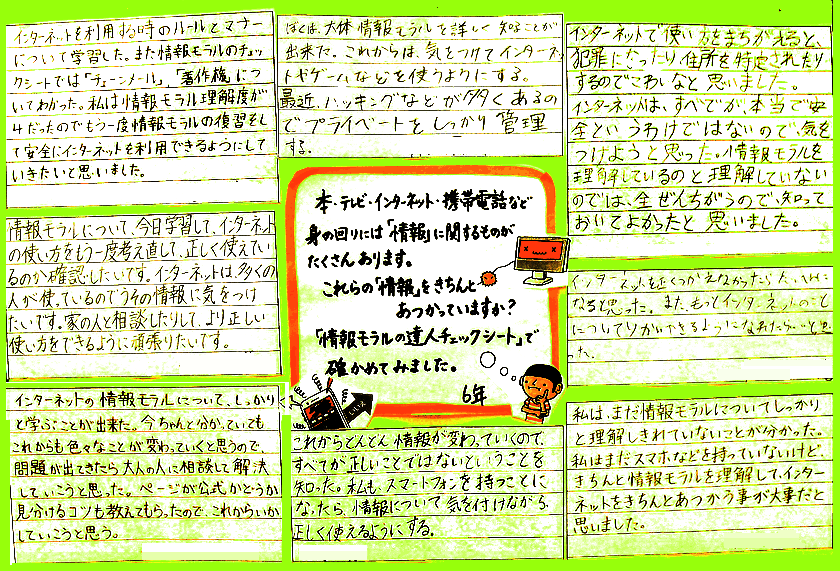 インターネットを利用する時のルールとマナー
について学習した。また情報モラルのチェッ
クシートでは「チェーンメール」、「著作権」につ
いてわかった。私は情報モラル理解度が
4だったのでもう一度情報モラルの復習をし
て安全にインターネットを利用できるようにして
いきたいと思いました。
ぼくは、大体情報モラルを詳しく知ることが
出来た。これからは、気をつけてインターネッ
トやゲームなどを使うようにする。
最近、ハッキングなどが多くあるの
でプライベートをしっかり管理
する。
インターネットで使い方をまちがえると、
犯罪になったり住所を特定されたり
するのでこわいなと思いました。
インターネットは、すべてが、本当で安
全というわけではないので、気を
つけようと思った。情報モラルを
理解しているのと理解していない
のでは、全ぜんちがうので、知って
おいてよかったと思いました。
情報モラルについて、今日学習して、インターネット
の使い方をもう一度考え直して、正しく使えてい
るのか確認したいです。インターネットは、多くの
人が使っているのでうその情報に気をつけ
たいです。家の人と相談したりして、より正しい
使い方をできるように頑張りたいです。
本・テレビ・インターネット・携帯電話など
身の回りには「情報」に関するものが
たくさんあります。
これらの「情報」をきちんと
あつかっていますか?
「情報モラルの達人チェックシート」で
確かめてみました。
6年
いいえ
インターネットを正しくつかえなかったら大
なると思った。また、もっとインターネットのこと
についてりかいできるようになれたら
た。
インターネットの情報モラルについて、しっかり
と学ぶことが出来た。今ちゃんと分かっていても
これからも色々なことが変わっていくと思うので、
問題が出てきたら大人の人に相談して解決
していこうと思った。ページが公式かどうか
見分けるコツも教えてもらったので、これからいか
していこうと思う。
これからどんどん情報が変わっていくので、
すべてが正しいことではないということを
知った。私も、スマートフォンを持つことに
なったら、情報について気を付けながら、
正しく使えるようにする。
私は、まだ情報モラルについてしっかり
と理解しきれていないことが分かった。
私はまだスマホなどを持っていないけど、
きちんと情報モラルを理解して、インター
ネットをきちんとあつかう事が大事だと
思いました。